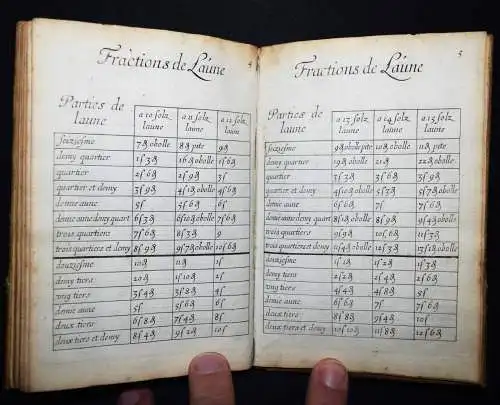 Fractions de Laúne 4
Parties de laune | a 10 solz laune | a 11 solz laune | a 12 solz laune
seiziesme | 7₰ obolle | 8₰ pite | 9₰
demy quartier | 1ſ 3₰ | 1ſ 4₰ obolle | 1ſ 6₰
quartier | 2ſ 6₰ | 2ſ 9₰ | 3ſ
quartier et demy | 3ſ 9₰ | 4ſ 1₰ obolle | 4ſ 6₰
demie aune | 5ſ | 5ſ 6₰ | 6ſ
demie aune demy quart | 6ſ 3₰ | 6ſ 10₰ obolle | 7ſ 6₰
trois quartiers | 7ſ 6₰ | 8ſ 3₰ | 9
trois quartiers et demy | 8ſ 9₰ | 9ſ 7₰ obolle | 10ſ 6₰
douziesme | 10₰ | 11₰ | 1ſ
demy tiers | 20₰ | 1ſ 10₰ | 2ſ
ung tiers | 3ſ 4₰ | 3ſ 8₰ | 4ſ
demie aune | 5ſ | 5ſ 6₰ | 6ſ
deux tiers | 6ſ 8₰ | 7ſ 4₰ | 8ſ
deux tiers et demy | 8ſ 4₰ | 9ſ 2₰ | 10ſ
Fractions de Laúne 5
Parties de laune | a 13 solz laune | a 14 solz laune | a 15 solz laune
seiziesme | 9₰ obolle pite | 10₰ obolle | 11₰ pite
demy quartier | 19₰ obolle | 21₰ | 22₰ obolle
quartier | 3ſ 3₰ | 3ſ 6₰ | 3ſ 9₰
quartier et demy | 4ſ 10₰ obolle | 5ſ 3₰ | 5ſ 7₰ obolle
demie aune | 6ſ 6₰ | 7ſ | 7ſ 6₰
demie aune demy quart | 8ſ 1₰ obolle | 8ſ 9₰ | 9ſ 4₰ obolle
trois quartiers | 9ſ 9₰ | 10ſ 6₰ | 11ſ 3₰
trois quartiers et demy | 11ſ 4₰ obolle | 12ſ 3₰ | 13ſ 1₰ obolle
douziesme | 1ſ 1₰ | 1ſ 2₰ | 1ſ 3₰
demy tiers | 2ſ 2₰ | 2ſ 4₰ | 2ſ 6₰
ung tiers | 4ſ 4₰ | 4ſ 8₰ | 5ſ
demie aune | 6ſ 6₰ | 7ſ | 7ſ 6₰
deux tiers | 8ſ 8₰ | 9ſ 4₰ | 10ſ
deux tiers et demy | 10ſ 10₰ | 11ſ 8₰ | 12ſ 6₰